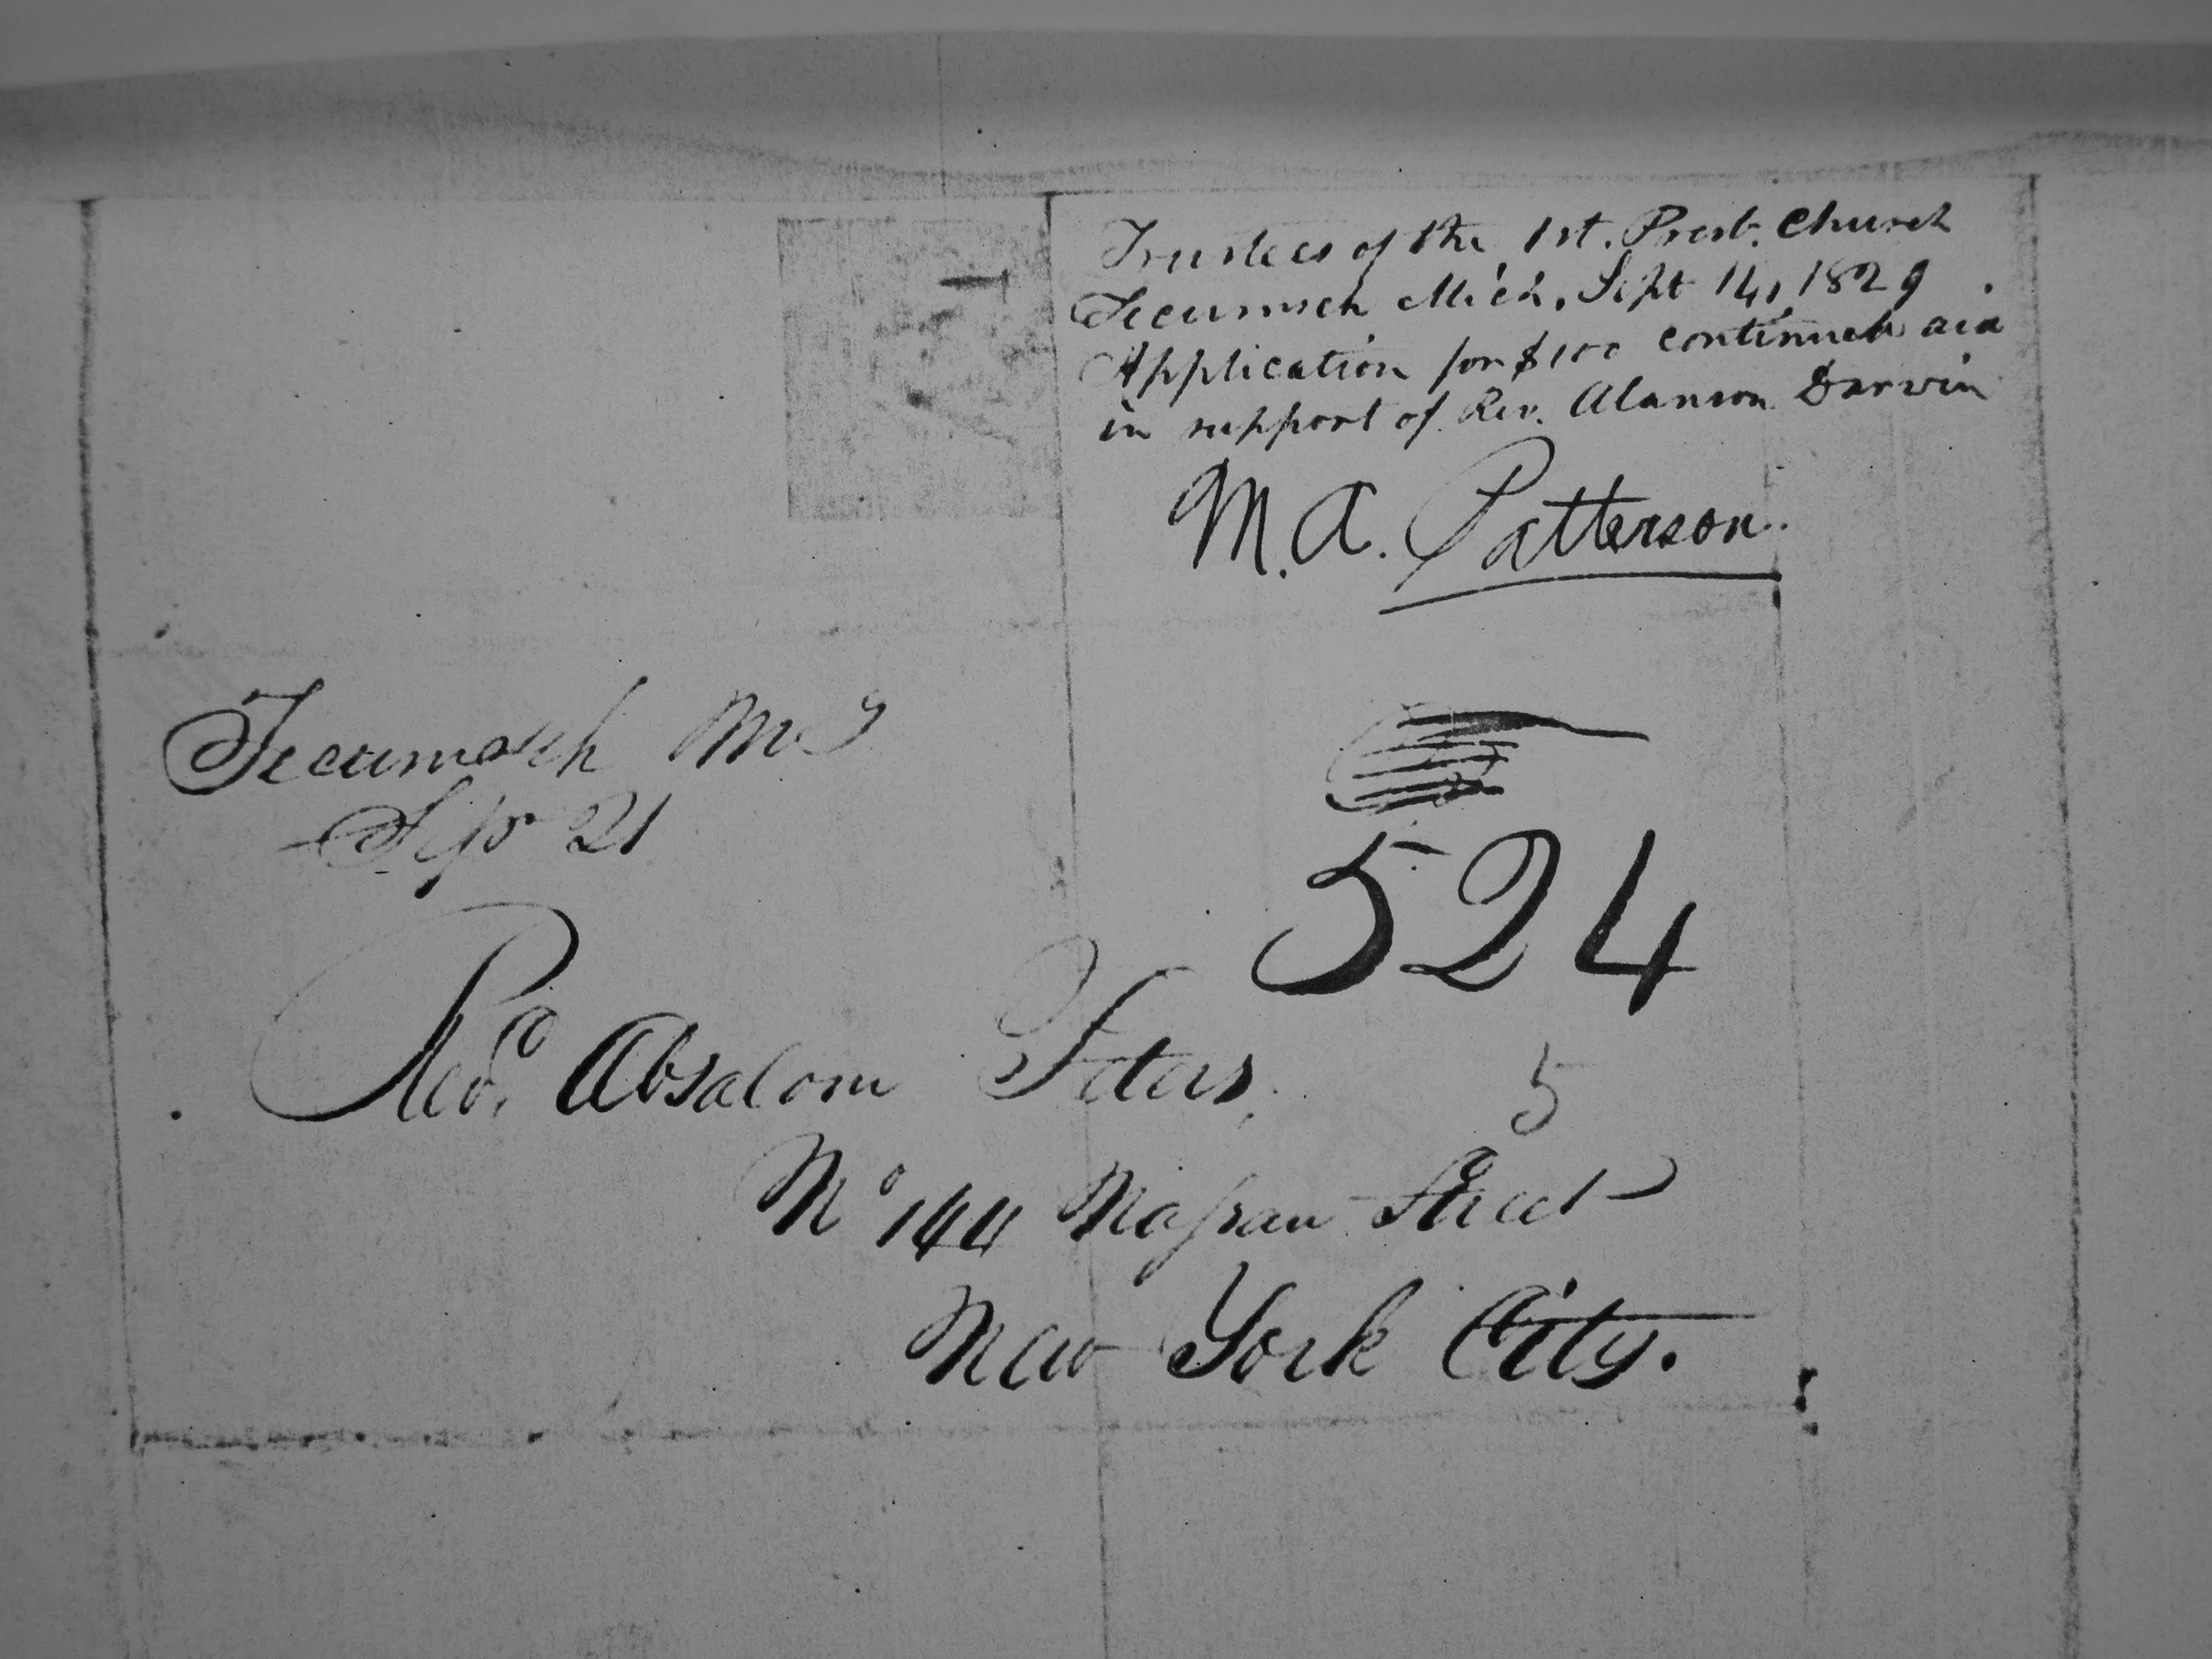 Trustees of the 1st. Presb. Church
Tecumseh Mich. Sept 14, 1829.
Application for $100 continued aid
in support of Rev. Alanson Darwin
M. A. Patterson.
Tecumseh
21
524
Revd. Absalom Peters,
5
No 144 Nassau Street
New York City.